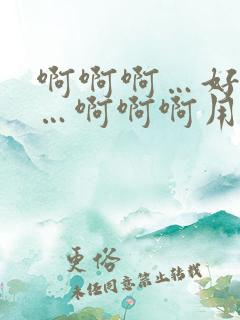 啊啊啊…好
…啊啊啊用
更俗
未经同意禁止转载